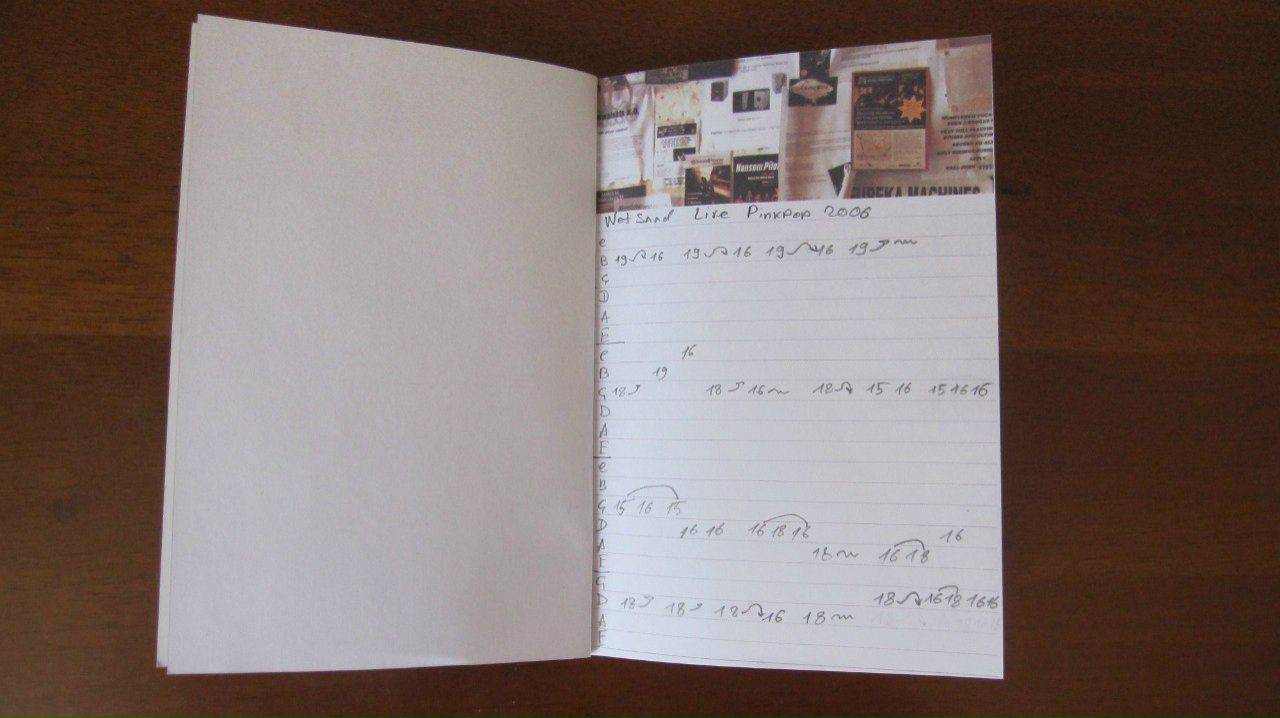 Hansom Pilo
EUREKA MACHINES
Wet Sand Live Pinkpop 2006
e
B 19 16 19 16 19 16 19
G
D
A
E
e 16
B 19
G 18 18 16 18 15 16 15 16 16
D
A
E
e
B
G 15 16 15
D 16 16 16 18 16 16
A 18 16 18
E
G
D 18 18 18 16 18 18 16 18 16 16
A
E